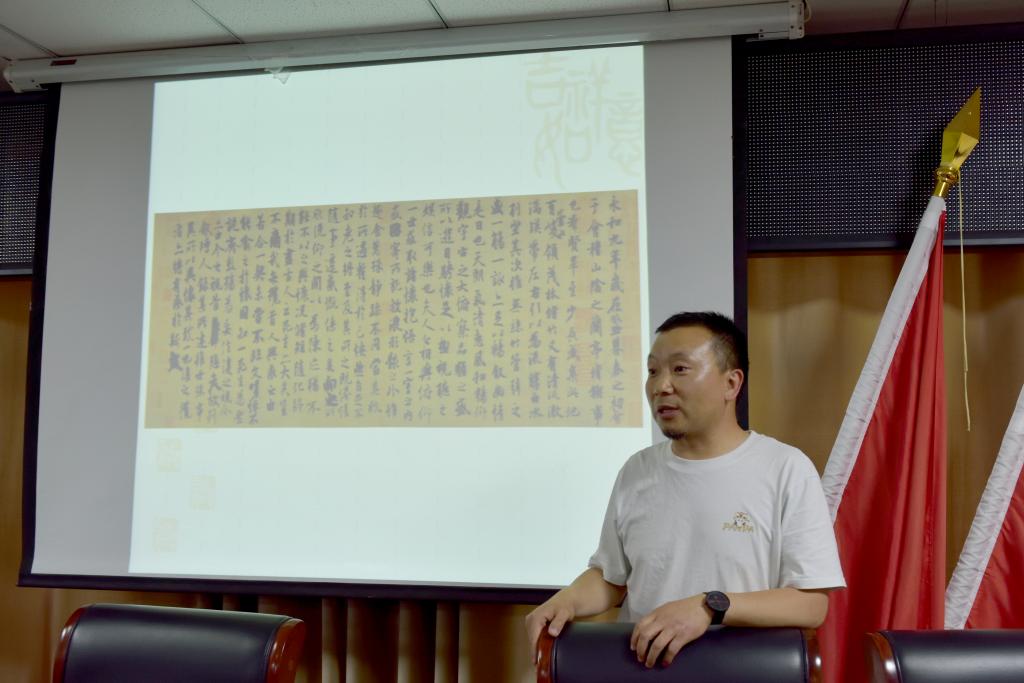 吉祥如意
永和九年歲在癸丑暮春之初會
于會稽山陰之蘭亭脩稧事
也群賢畢至少長咸集此地
有崇山峻領茂林脩竹又有清流激
湍暎帶左右引以為流觴曲水
列坐其次雖無絲竹管弦之
盛一觴一詠亦足以暢敘幽情
是日也天朗氣清惠風和暢仰
觀宇宙之大俯察品類之盛
所以遊目騁懷足以極視聽之
娛信可樂也夫人之相與俯仰
一世或取諸懷抱悟言一室之內
或因寄所託放浪形骸之外雖
趣舍萬殊靜躁不同當其欣
於所遇暫得於己怏然自足不
知老之將至及其所之既惓情
隨事遷感慨係之矣向之所
欣俛仰之間以為陳迹猶不
能不以之興懷況脩短隨化終
期於盡古人云死生亦大矣豈
不痛哉每攬昔人興感之由
若合一契未嘗不臨文嗟悼不
能喻之於懷固知一死生為虛
誕齊彭殤為妄作後之視今
亦由今之視昔悲夫故列
敘時人錄其所述雖世殊事
異所以興懷其致一也後之攬
者亦將有感於斯文